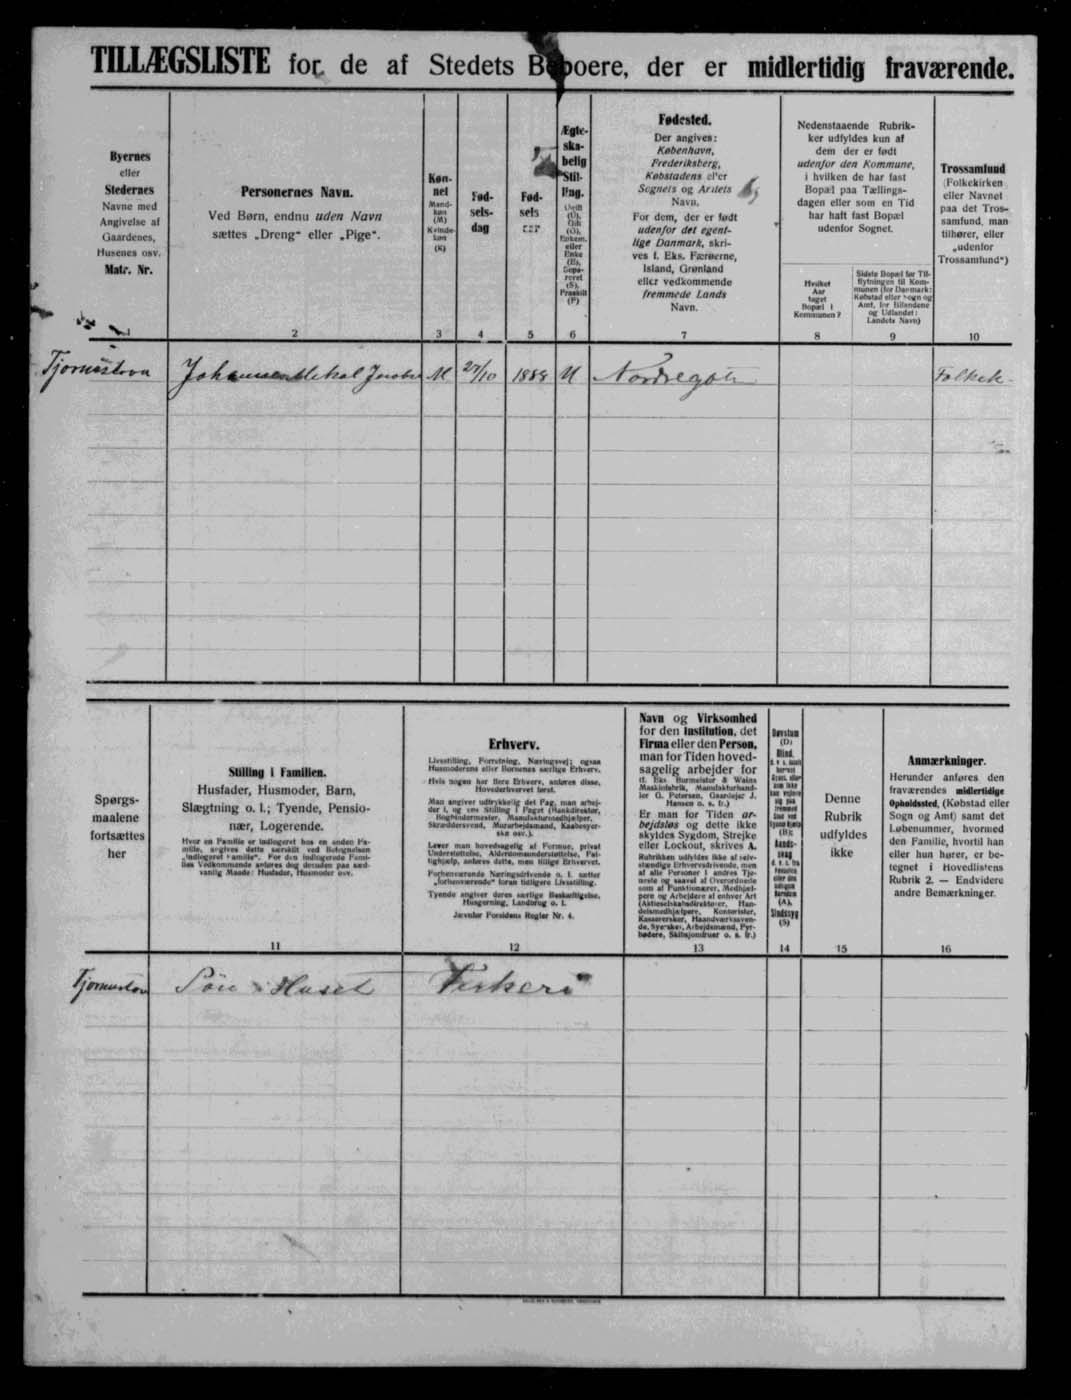 TILLÆGSLISTE for de af Stedets Beboere, der er midlertidig fraværende.
Byernes
eller
Stedernes
Navne med
Angivelse af
Gaardenes,
Husenes osv.
Matr. Nr.
1
Personernes Navn.
Ved Børn, endnu uden Navn
sættes „Dreng“ eller „Pige“.
2
Køn-
net
Mand-
køn
(M)
Kvinde-
køn
(K)
3
Fød-
sels-
dag
4
Fød-
sels
aar
5
Ægte-
ska-
belig
Stil-
ling.
Ugift
(U),
Gift
(G),
Enkem.
eller
Enke
(E),
Sepa-
reret
(S),
Fraskilt
(F)
6
Fødested.
Der angives:
København,
Frederiksberg,
Købstadens eller
Sognets og Amtets
Navn.
For dem, der er født
udenfor det egent-
lige Danmark, skri-
ves f. Eks. Færøerne,
Island, Grønland
eller vedkommende
fremmede Lands
Navn.
7
Nedenstaaende Rubrik-
ker udfyldes kun af
dem der er født
udenfor den Kommune,
i hvilken de har fast
Bopæl paa Tællings-
dagen eller som en Tid
har haft fast Bopæl
udenfor Sognet.
Hvilket
Aar
taget
Bopæl i
Kommunen?
8
Sidste Bopæl før Til-
flytningen til Kom-
munen (for Danmark:
Købstad eller Sogn og
Amt, for Bilandene
og Udlandet:
Landets Navn)
9
Trossamfund
(Folkekirken
eller Navnet
paa det Tros-
samfund, man
tilhører, eller
„udenfor
Trossamfund“)
10
Tjornustova Johannes Mikal Jacobs M 1888 U Nordregøte Folkek-
Spørgs-
maalene
fortsættes
her
Stilling i Familien.
Husfader, Husmoder, Barn,
Slægtning o. l.; Tyende, Pensio-
nær, Logerende.
Hvor en Familie er indlogeret hos en anden Fa-
milie, angives dette særskilt ved Betegnelsen
„indlogeret Familie“. For den indlogerede Fami-
lies Vedkommende anføres dog desuden paa sæd-
vanlig Maade: Husfader, Husmoder osv.
11
Erhverv.
Livsstilling, Forretning, Næringsvej; ogsaa
Husmoderens eller Børnenes særlige Erhverv.
Hvis nogen har flere Erhverv, anføres disse,
Hovederhvervet først.
Man angiver udtrykkelig det Fag, man arbej-
der i, og ens Stilling i Faget (Bankdirektør,
Bogbindermester, Manufakturmedhjælper,
Skræddersvend, Murarbejdsmand, Kaabesyer-
ske osv.).
Lever man hovedsagelig af Formue, privat
Understøttelse, Alderdomsunderstøttelse, Fat-
tighjælp, anføres dette, men tillige Erhvervet.
Forhenværende Næringsdrivende o. l. sætter
„forhenværende“ foran tidligere Livsstilling.
Tyende angiver deres særlige Beskæftigelse,
Husgerning, Landbrug o. l.
Jævnfør Forsidens Regler Nr. 4.
12
Navn og Virksomhed
for den Institution, det
Firma eller den Person,
man for Tiden hoved-
sagelig arbejder for
(f. Eks. Burmeister & Wains
Maskinfabrik, Manufakturhand-
ler G. Petersen, Gaardejer J.
Hansen o. s. fr.)
Er man for Tiden ar-
bejdsløs og dette ikke
skyldes Sygdom, Strejke
eller Lockout, skrives A.
Rubrikken udfyldes ikke af selv-
stændige Erhvervsdrivende, men
af alle Personer i andres Tje-
neste og saavel af Overordnede
som af Funktionærer, Medhjæl-
pere og Arbejdere af enhver Art
(Aktieselskabsdirektører, Han-
delsmedhjælpere, Kontorister,
Kassererske, Haandværkssven-
de, Syersker, Arbejdsmænd, Fyr-
bødere, Skibsjomfruer o. s. fr.)
13
Døvstum
(D)
Blind,
(B);
Aands-
svag
(A),
Sindssyg
(S)
14
Denne
Rubrik
udfyldes
ikke
15
Anmærkninger.
Herunder anføres den
fraværendes midlertidige
Opholdssted, (Købstad eller
Sogn og Amt) samt det
Løbenummer, hvormed
den Familie, hvortil han
eller hun hører, er be-
tegnet i Hovedlistens
Rubrik 2. — Endvidere
andre Bemærkninger.
16
Tjornustova Søn i Huset Fiskeri